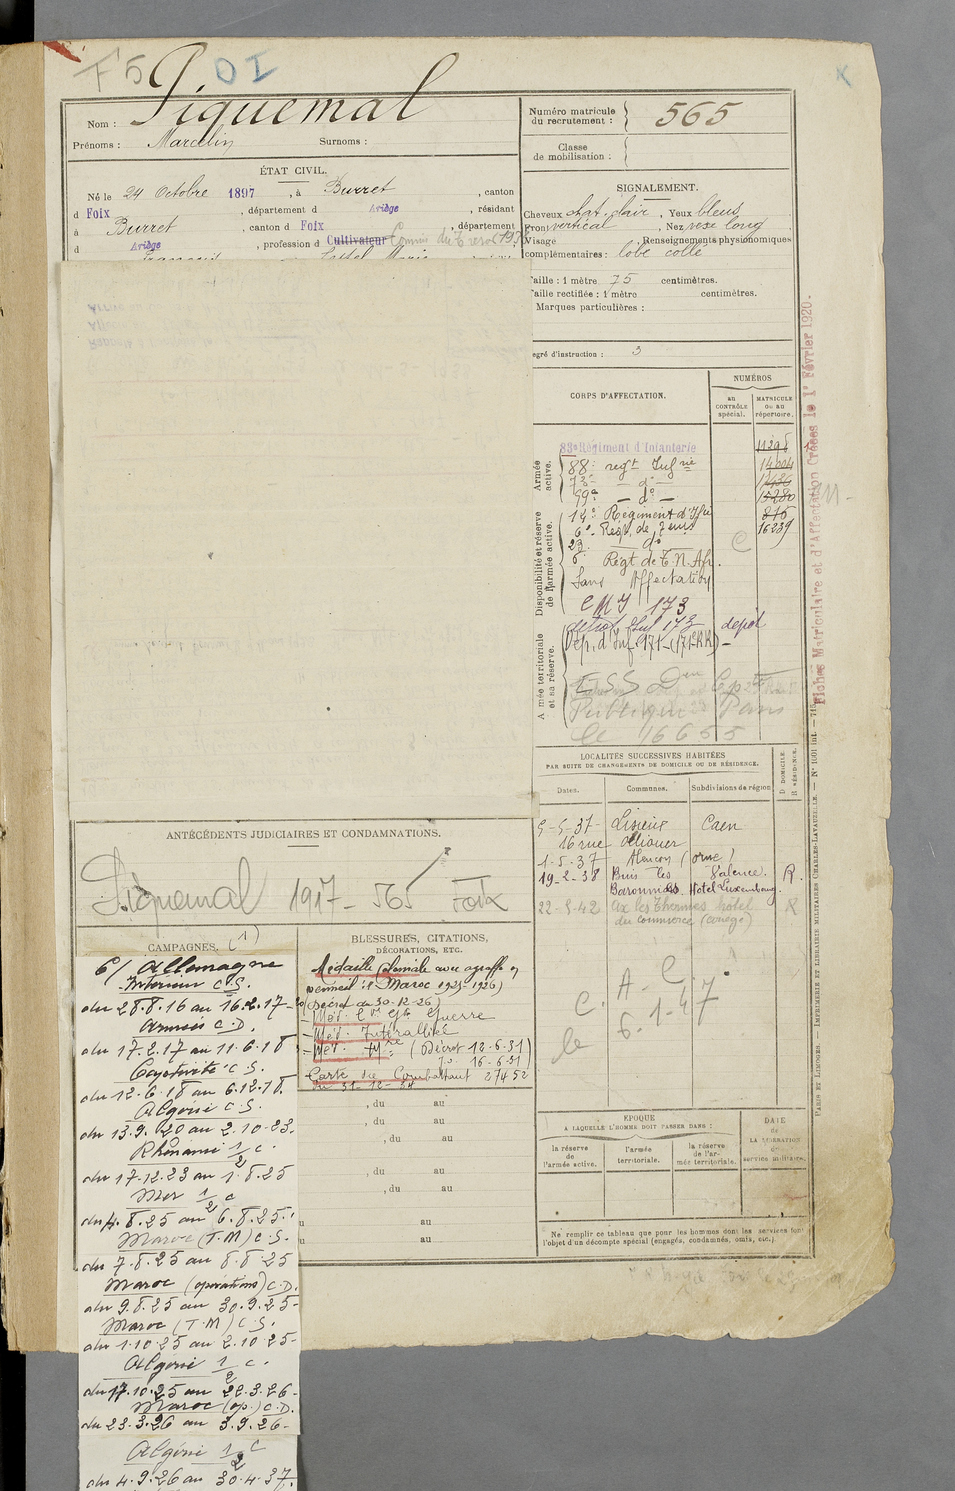 F 5 OI
Nom : Piquemal
Prénoms : Marcelin Surnoms :
Numéro matricule du recrutement : 565
Classe de mobilisation :
ÉTAT CIVIL.
Né le 24 Octobre 1897, à Burret, canton
d Foix, département d Ariège, résidant
à Burret, canton d Foix, département
d Ariège, profession d Cultivateur
SIGNALEMENT.
Cheveux chat. clair, Yeux bleus
Front vertical, Nez rect. long
Visage Renseignements physionomiques
complémentaires : lobe collé
Taille : 1 mètre 75 centimètres.
Taille rectifiée : 1 mètre centimètres.
Marques particulières :
egré d'instruction : 3
CORPS D'AFFECTATION.
NUMÉROS
au CONTRÔLE spécial.
MATRICULE ou au répertoire.
Armée active.
83e Régiment d'Infanterie
88e regt Infrie 14004
99e — do —
Disponibilité et réserve de l'armée active.
14e Régiment d'Ifrie 815
6e Regt de Zouaves 16239
23 — do
6e Régt de T. N. Afr.
Sans Affectation
CMI 173
A mée territoriale et sa réserve.
dépot
Dép. d'Inf. 171 (171e RR) -
Paris
le 16 6 55
Fiches Matriculaire et d'Affectation Créées le 1er Février 1920.
LOCALITÉS SUCCESSIVES HABITÉES
PAR SUITE DE CHANGEMENTS DE DOMICILE OU DE RÉSIDENCE.
Dates. Communes. Subdivisions de région D DOMICILE. R RÉSIDENCE.
5-5-37- Lisieux Caen
16 rue
1-5-37- Alençon (orne)
19-2-38 Buis les Valence. R.
Baronnies Hotel Luxembourg.
22-5-42 Ax les Thermes hôtel R
du commerce (ariège)
C. A. C.
le 6.1-47
ANTÉCÉDENTS JUDICIAIRES ET CONDAMNATIONS.
Piquemal 1917- 565 Foix
CAMPAGNES. (1)
C/ Allemagne
Intérieur C.S.
du 28.8.16 au 16.2.17-
Armées C.D.
du 17.2.17 au 11.6.18
Captivité C.S.
du 12.6.18 au 6.12.18.
Algérie C.S.
du 13.9.20 au 2.10.23.
Rhénanie 1/2 c.
du 17.12.23 au 1.8.25
Mer 1/2 c
du 4.8.25 au 6.8.25.
Maroc (T.M) C.S.
du 7.8.25 au 8.8.25
Maroc (opérations) C.D.
du 9.8.25 au 30.9.25-
Maroc (T.M) C.S.
du 1.10.25 au 2.10.25-
Algérie 1/2 c.
du 17.10.25 au 22.3.26-
Maroc (op.) C.D.
du 23.3.26 au 3.9.26-
Algérie 1/2 c
du 4.9.26 au 30.4.37.
BLESSURES, CITATIONS,
DÉCORATIONS, ETC.
Médaille Coloniale avec agraffe en
vermeil : "Maroc 1925-1926)
(Décret du 30-12-26)
- Med. Cve Gde Guerre
- Med. Interalliée
- Med. Mre (Décret 12-6-31)
J.O. 16-6-31
Carte du Combattant 27452
du 31-12-34
, du au
, du au
, du au
, du au
, du au
u au
u au
EPOQUE
A LAQUELLE L'HOMME DOIT PASSER DANS :
la réserve de l'armée active.
l'armée territoriale.
la réserve de l'armée territoriale.
DATE de LA LIBÉRATION du service militaire.
Ne remplir ce tableau que pour les hommes dont les services font l'objet d'un décompte spécial (engagés, condamnés, omis, etc.).
PARIS ET LIMOGES. — IMPRIMERIE ET LIBRAIRIE MILITAIRES CHARLES-LAVAUZELLE. — N° 1001 int.